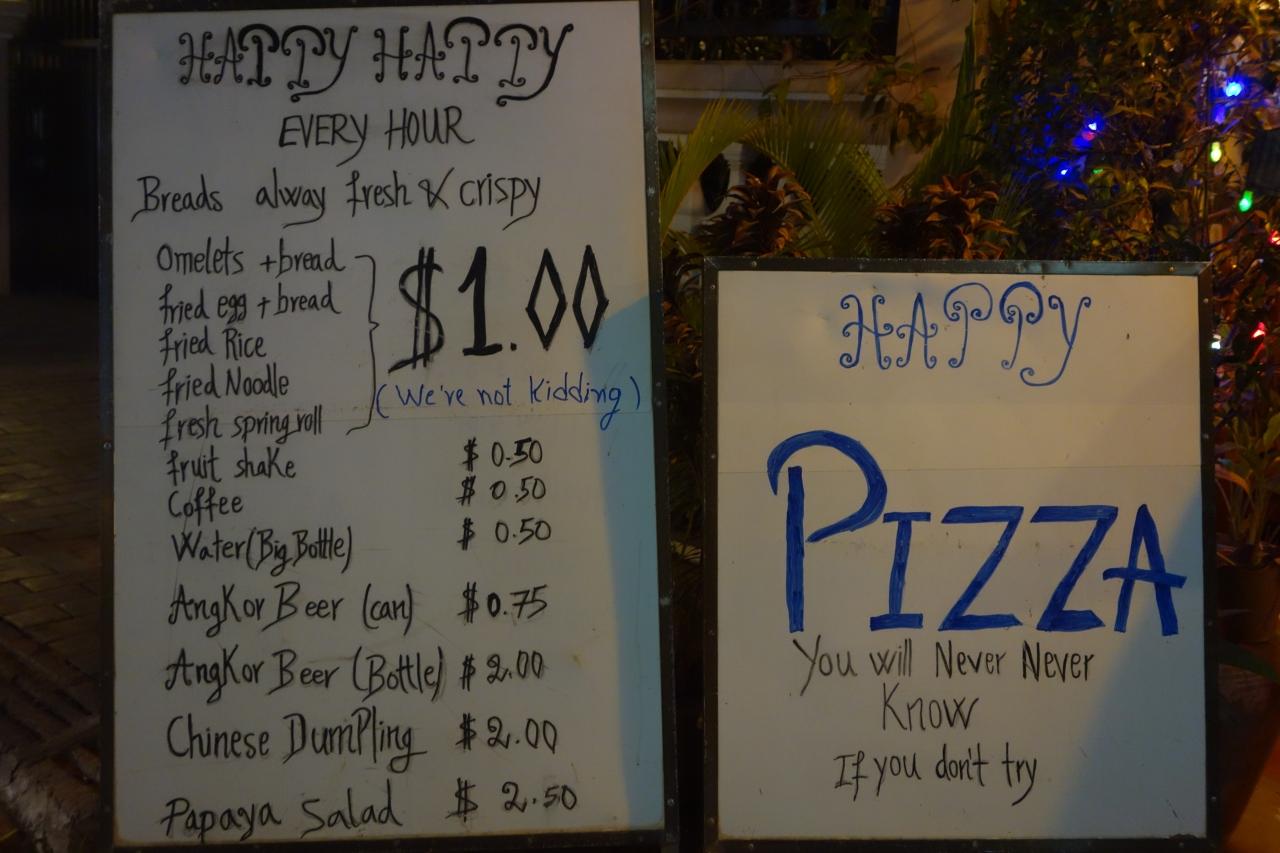 HAPPY HAPPY
EVERY HOUR
Breads alway fresh & crispy
Omelets + bread
fried egg + bread
fried Rice
fried Noodle
fresh spring roll
$1.00
(We're not kidding)
fruit shake $ 0.50
Coffee $ 0.50
Water (Big Bottle) $ 0.50
AngKor Beer (can) $0.75
AngKor Beer (Bottle) $2.00
Chinese DumPling $2.00
Papaya Salad $ 2.50
HAPPY
PIZZA
You will Never Never
Know
If you don't try